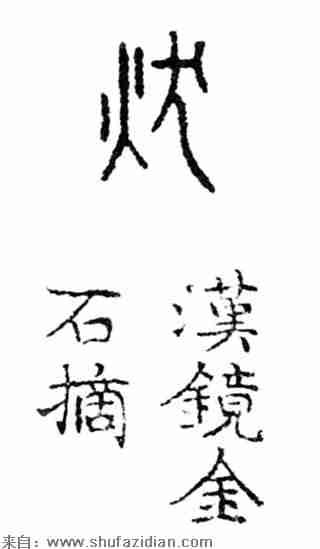 漢鏡金
石摘
来自：www.shufazidian.com